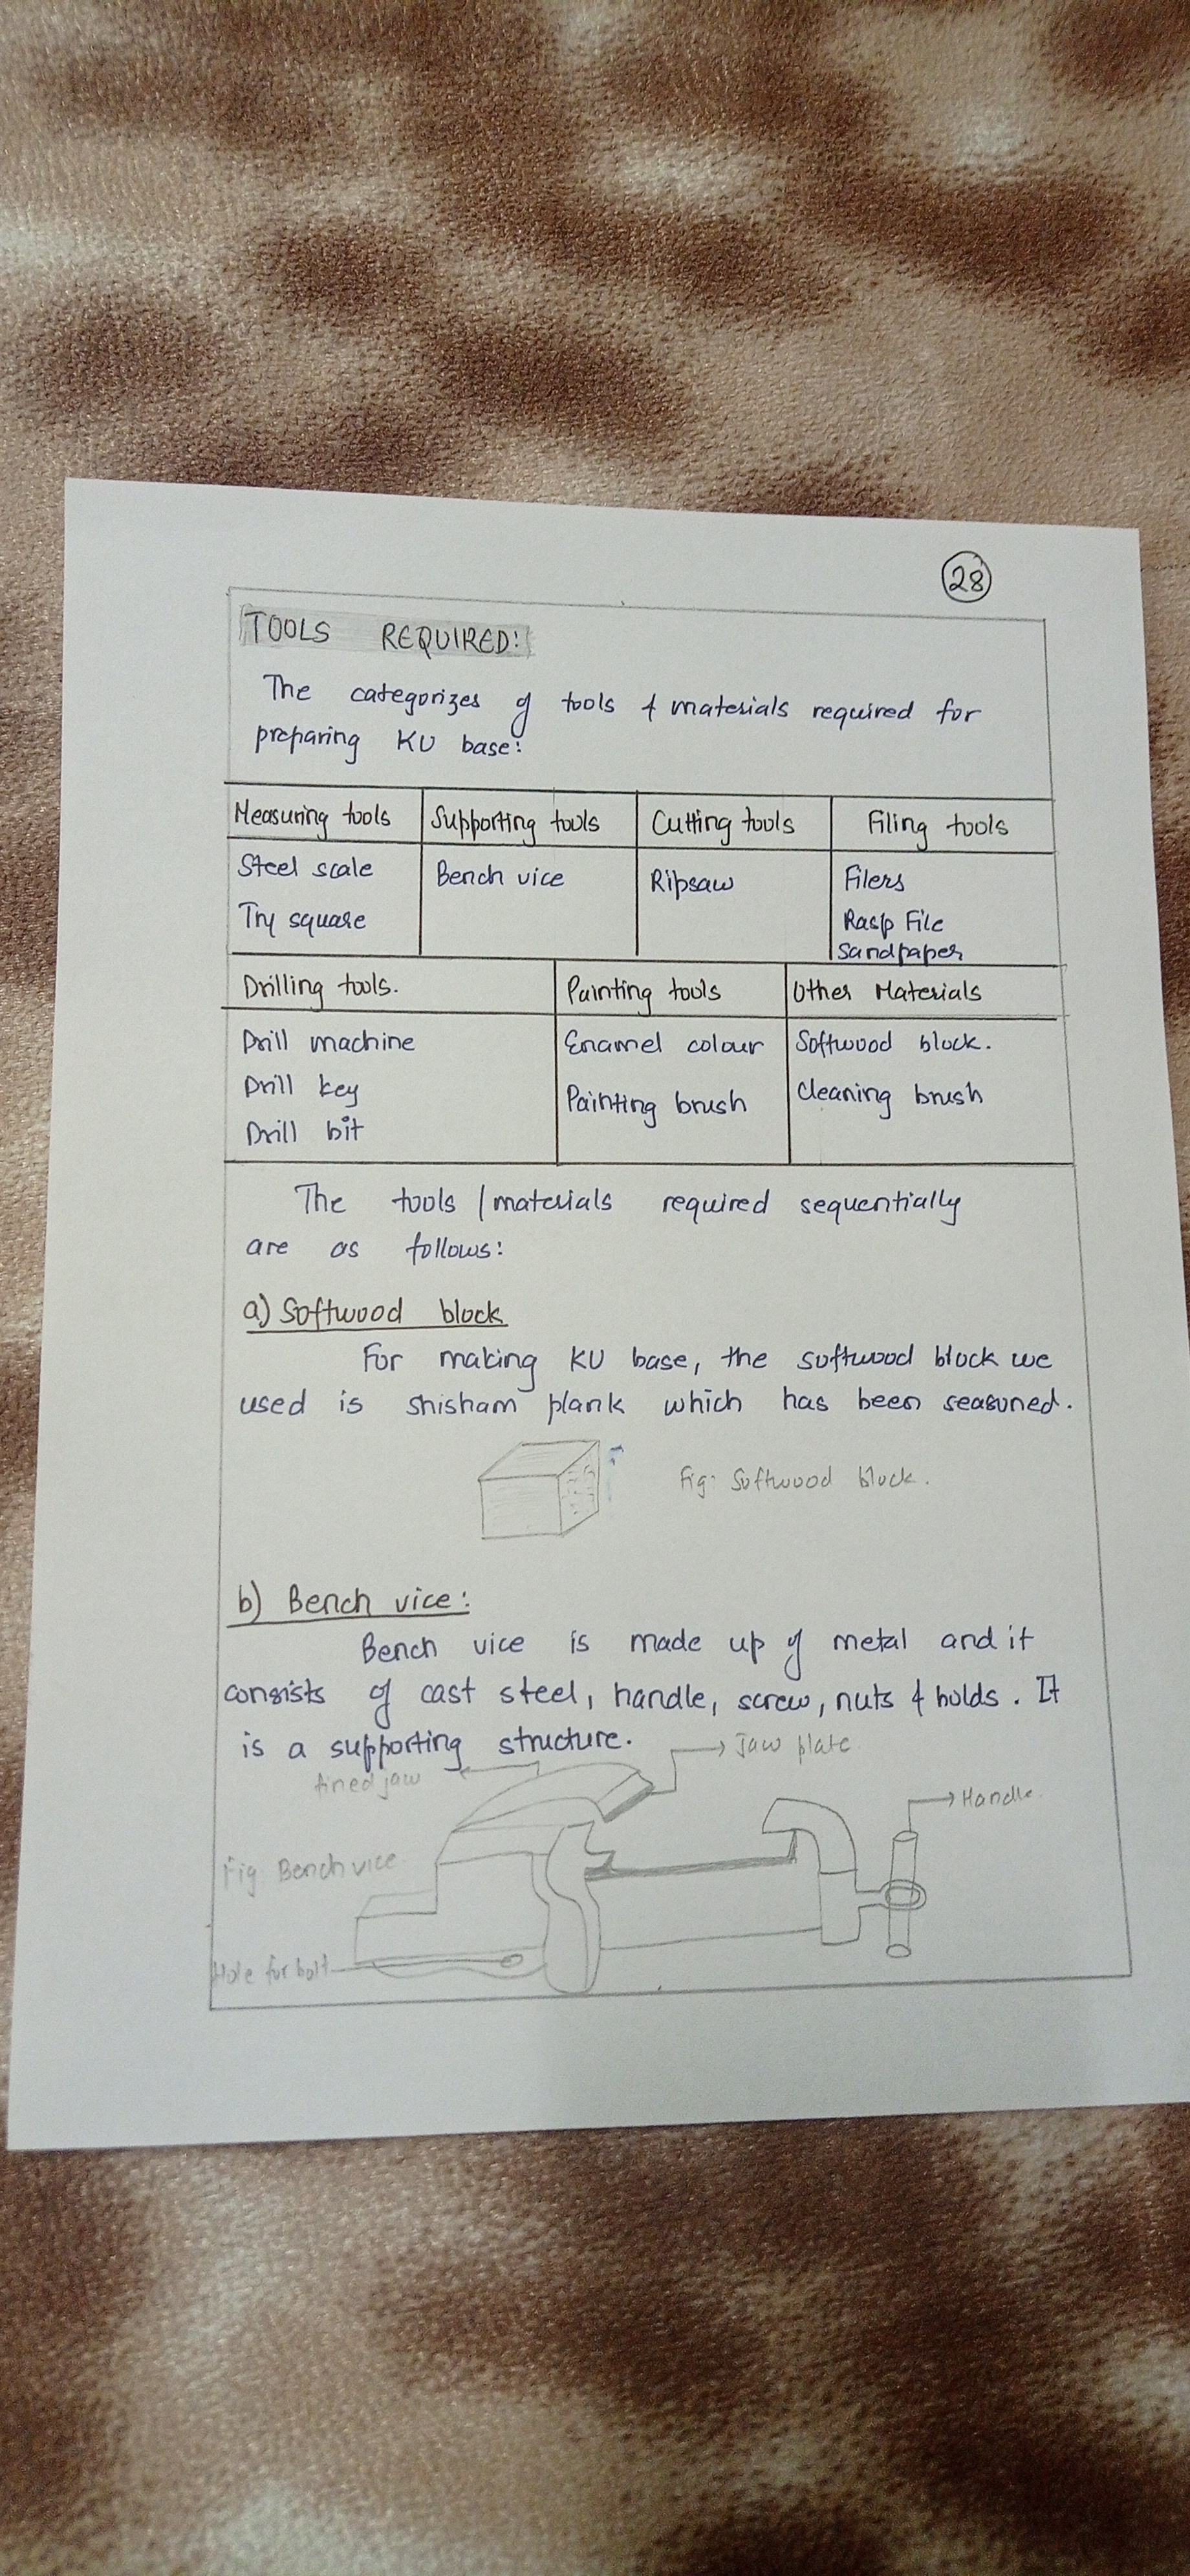 28
TOOLS REQUIRED:
The categorizes of tools & materials required for
preparing KU base:
Measuring tools Supporting tools Cutting tools Filing tools
Steel scale Bench vice Ripsaw Filers
Try square Rasp File
Sandpaper
Drilling tools. Painting tools Other Materials
Drill machine Enamel colour Softwood block.
Drill key Painting brush Cleaning brush
Drill bit
The tools / materials required sequentially
are as follows:
a) Softwood block
For making KU base, the softwood block we
used is shisham plank which has been seasoned.
Fig: Softwood block.
b) Bench vice:
Bench vice is made up of metal and it
consists of cast steel, handle, screw, nuts & holds. It
is a supporting structure.
Jaw plate
jaw
Handle
Fig Bench vice
Hole for bolt